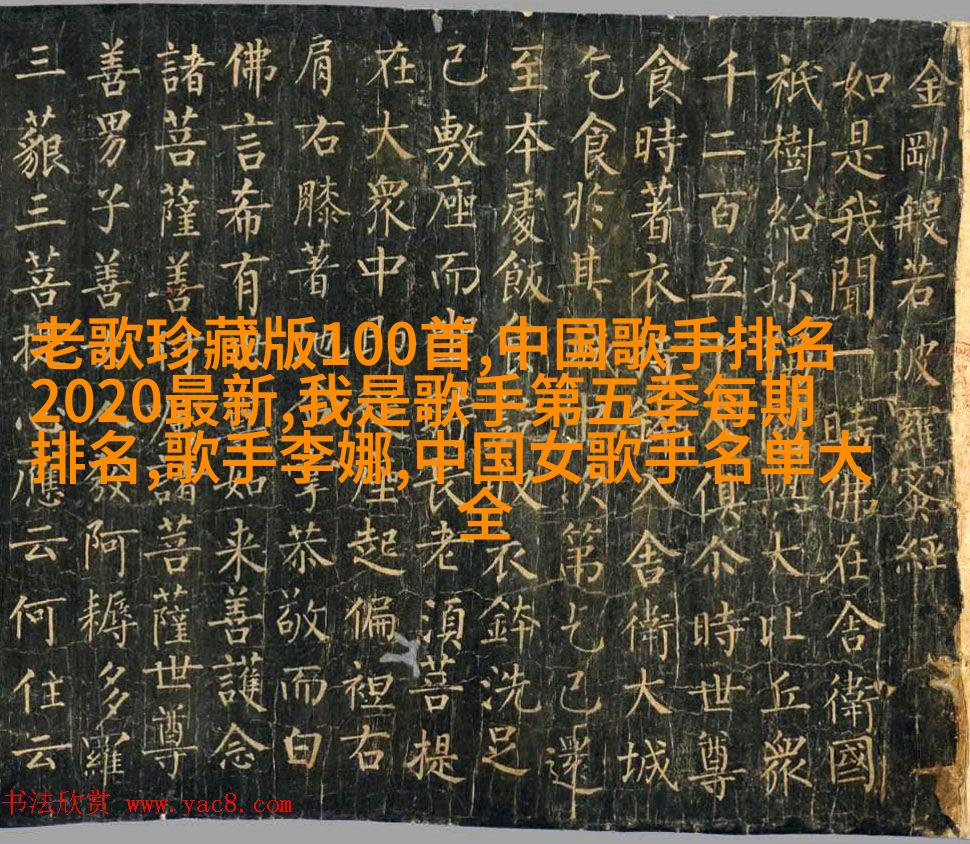 金剛般若波羅蜜經
如是我聞一時佛在舍衛國
祇樹給孤與大比丘眾
千二百五人俱尒時世尊
食時著衣入舍衛大城
乞食於其次第乞已還
至本處飯收衣鉢洗足
已敷座而長老須菩提
在大眾中座起偏袒右
肩右膝著地掌恭敬而白
佛言希有如来善護念
諸菩薩善諸菩薩世尊
善男子善發阿耨多羅
三藐三菩提心應云何住云
老歌珍藏版100首,中国歌手排名
2020最新,我是歌手第五季每期
排名,歌手李娜,中国女歌手名单大
全
书法欣赏 www.yac8.com